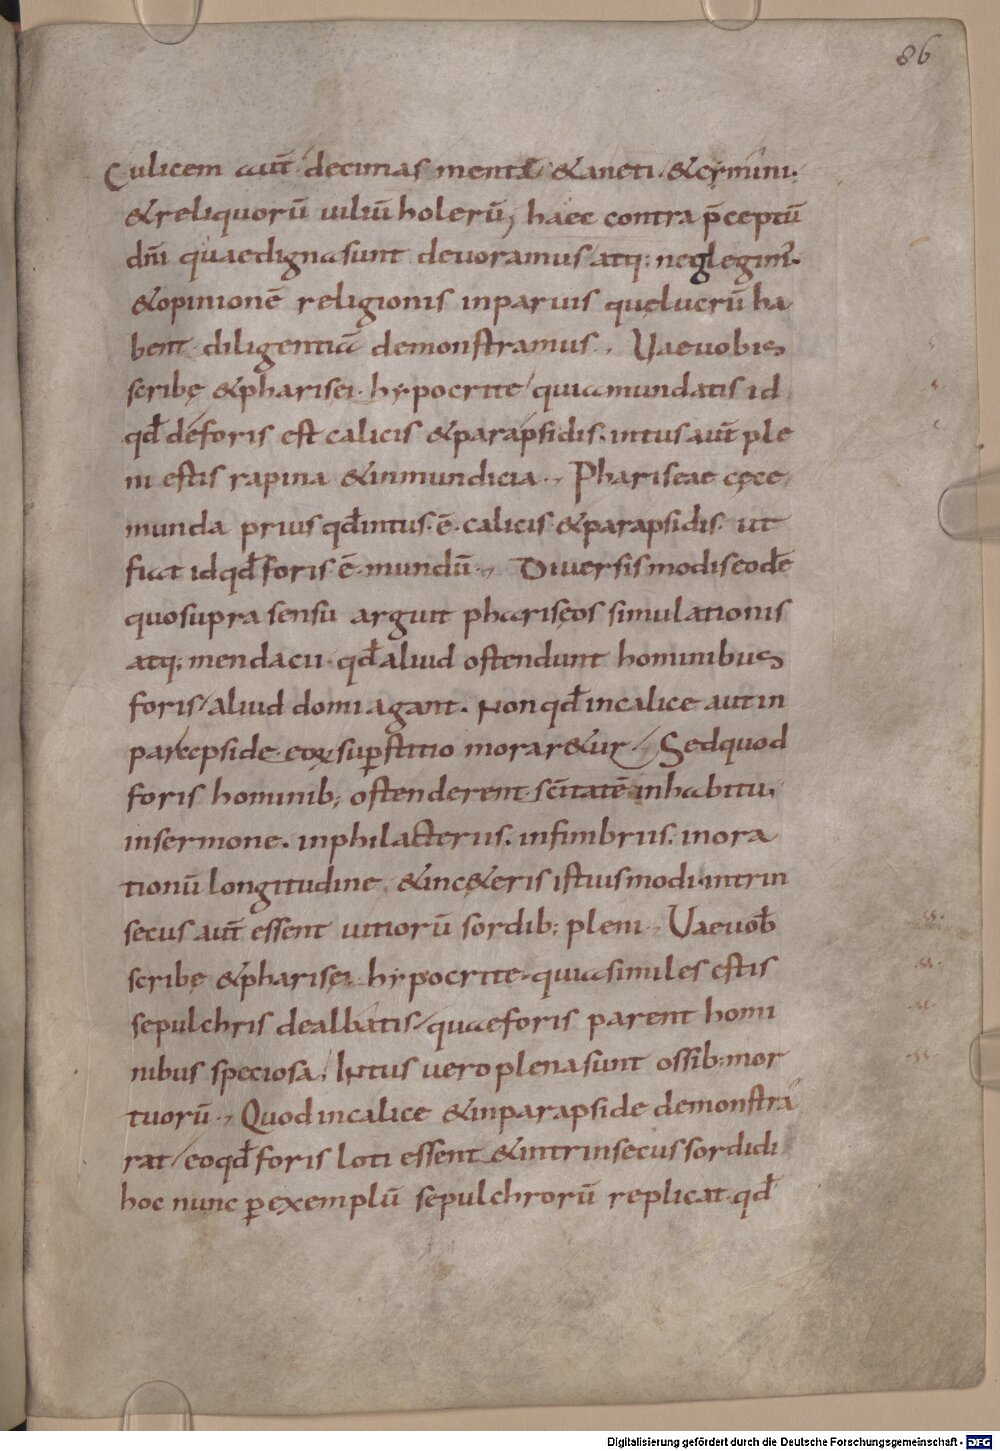 86
Culicem aūt decimas mentæ &aneti. &cymini.
&reliquorū uiliū holerū; haec contra p̄ceptū
dn̄i quaedignasunt deuoramus atq; neglegim̄.
&opinionē religionis inparuis quęlucrū ha
bent diligentiā demonstramus., Uaeuobis
scribę &pharisęi. hypocrite quiamundatis id
qđ deforis est calicis &parapsidis. intus aūt ple
ni estis rapina &inmundicia., Phariseae cęce
munda prius qđintus.ē. calicis &parapsidis. ut
fiat idqđforis.ē. mundū., Diuersismodiseodē
quosupra sensu arguit pharisęos simulationis
atq; mendacii. qđaliud ostendunt hominibus
foris/aliud domi agant. Non qđincalice autin
parapside eoꝝ supstitio morar&ur. Sedquod
foris hominib; ostenderent scītatē inhabitu,
insermone. inphilacteriis. infimbriis. inora
tionū longitudine. &inc&eris istiusmodi.intrin
secus aūt essent uitiorū sordib; pleni., Uaeuob̄
scribę &pharisęi hypocrite. quiasimiles estis
sepulchris dealbatis/quaeforis parent homi
nibus speciosa, Intus uero plenasunt ossib;mor
tuorū., Quodincalice &inparapside demonstra
rat/eoqđforis loti essent &intrinsecussordidi
hoc nunc ꝑexemplū sepulchrorū replicat.qđ
Digitalisierung gefördert durch die Deutsche Forschungsgemeinschaft - DFG